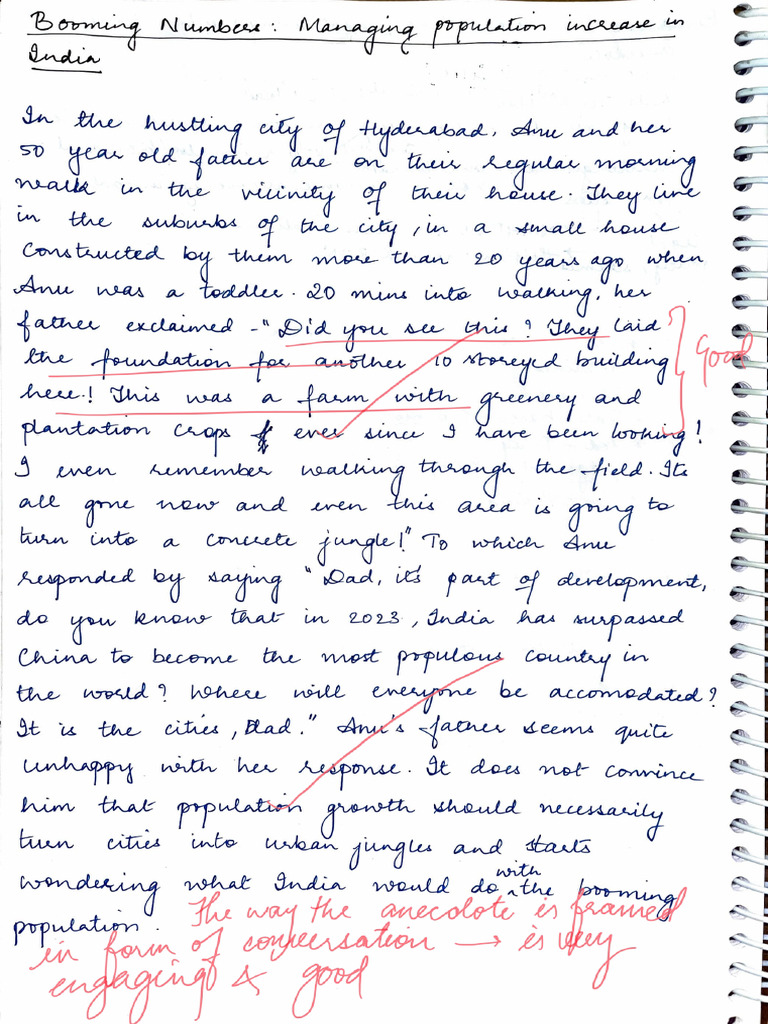 Booming Numbers: Managing population increase in
India
In the hustling city of Hyderabad, Anu and her
50 year old father are on their regular morning
walk in the vicinity of their house. They live
in the suburbs of the city, in a small house
constructed by them more than 20 years ago when
Anu was a toddler. 20 mins into walking, her
father exclaimed - "Did you see this? They laid
the foundation for another 10 storeyed building
here! This was a farm with greenery and
Good
plantation crops ever since I have been looking!
I even remember walking through the field. Its
all gone now and even this area is going to
turn into a concrete jungle!" To which Anu
responded by saying "Dad, it's part of development,
do you know that in 2023, India has surpassed
China to become the most populous country in
the world? Where will everyone be accomodated?
It is the cities, Dad." Anu's father seems quite
unhappy with her response. It does not convince
him that population growth should necessarily
turn cities into urban jungles and starts
wondering what India would do with the booming
population.
The way the anecdote is framed
in form of conversation → is very
engaging & good